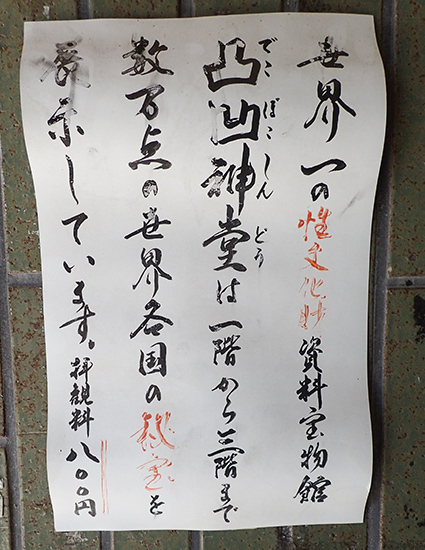 世界一の性文化財資料宝物館
でこぼこしんどう
凸凹神堂は一階から三階まで
数万点の世界各国の秘宝を
展示しています。拝観料八〇〇円